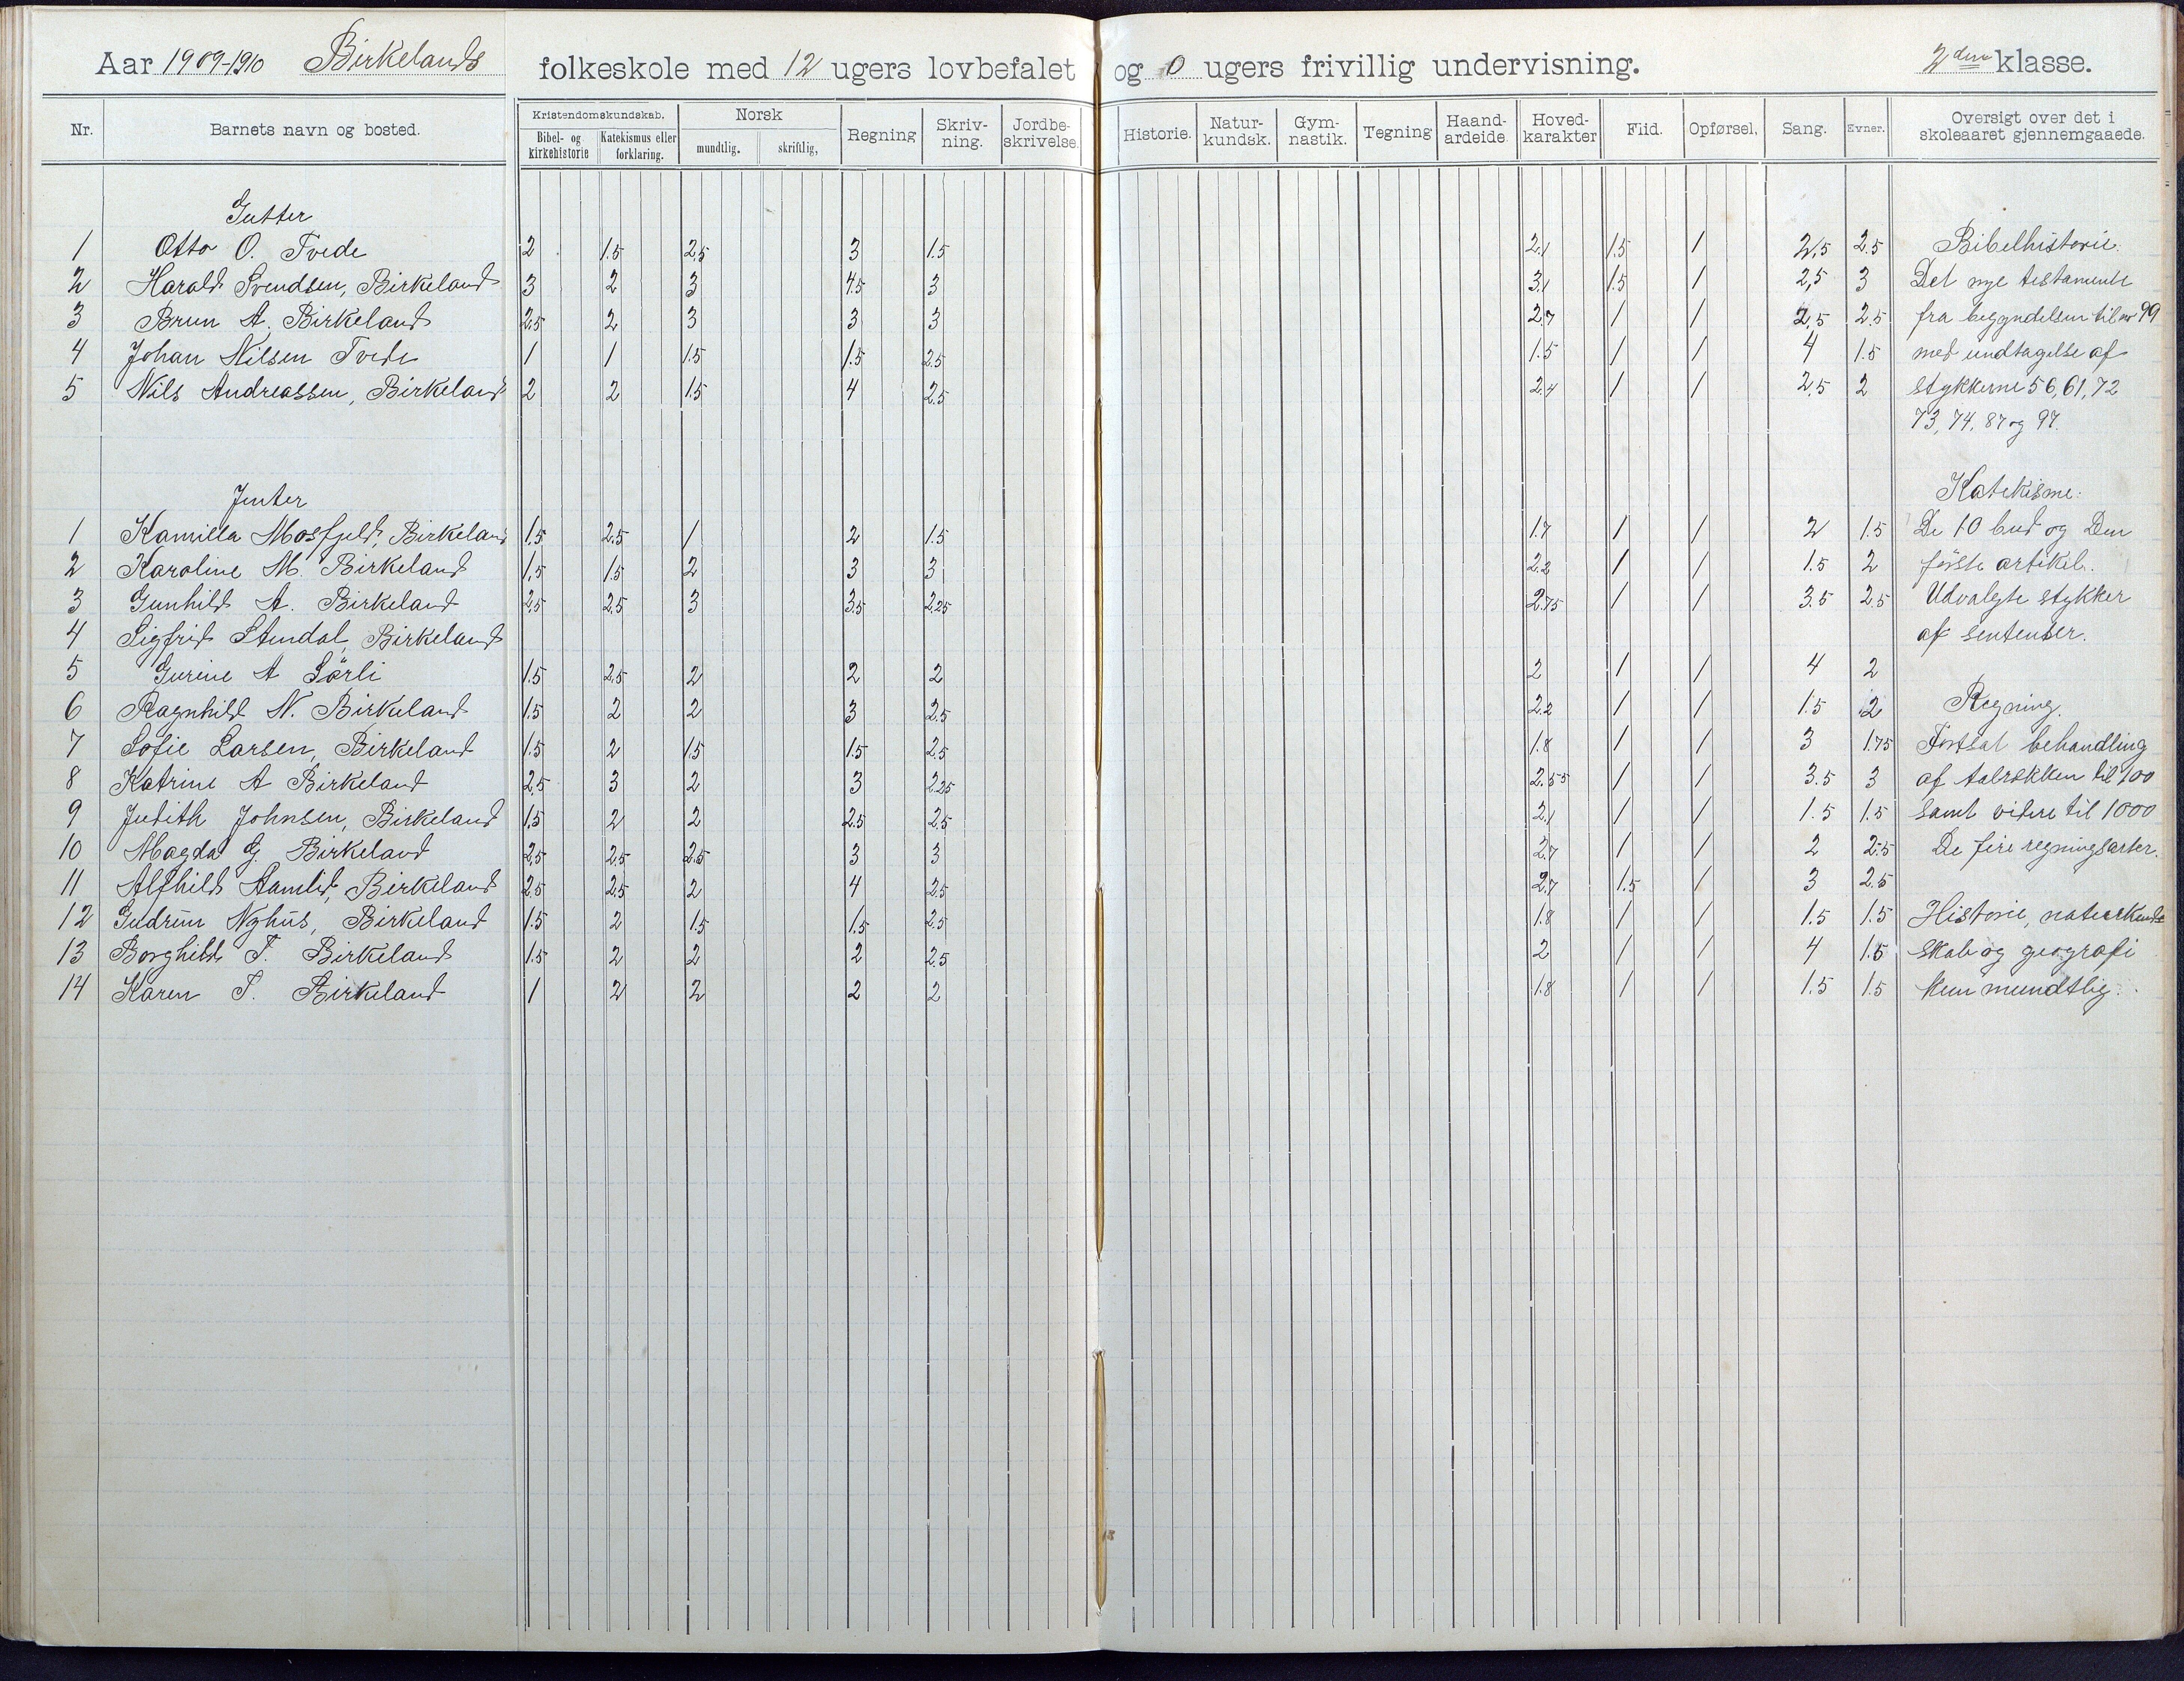 Aar 1909-1910 Birkelands folkeskole med 12 ugers lovbefalet og 0 ugers frivillig undervisning. 2den klasse.
Nr. Barnets navn og bosted. Kristendomskundskab. Bibel- og kirkehistorie Katekismus eller forklaring. Norsk mundtlig. skriftlig, Regning Skriv-ning. Jordbe-skrivelse. Historie. Natur-kundsk. Gym-nastik. Tegning Haand-arbeide. Hoved-karakter Flid. Opførsel. Sang. Evner. Oversigt over det i skoleaaret gjennemgaaede.
Gutter
1 Otto O. Tvede 2 1.5 2.5 3 1.5 2.1 1.5 1 2,5 2.5 Bibelhistorie.
2 Harald Svendsen, Birkeland 3 2 3 4.5 3 3.1 1.5 1 2,5 3 Det nye testamente
3 Brun A. Birkeland 2.5 2 3 3 3 2.7 1 1 2,5 2.5 fra begyndelsen til nr 99
4 Johan Nilsen Tvede 1 1 1.5 1.5 2.5 1.5 1 1 4 1.5 med undtagelse af
5 Nils Andreassen, Birkeland 2 2 1.5 4 2.5 2.4 1 1 2,5 2 stykkerne 56, 61, 72
73, 74, 87 og 97.
Jenter
Katekisme:
1 Kamilla Mosfjeld, Birkeland 1.5 2.5 1 2 1.5 1.7 1 1 2 1.5 De 10 bud og Den
2 Karoline M. Birkeland 1,5 1.5 2 3 3 2.2 1 1 1.5 2 förste artikel.
3 Gunhild A. Birkeland 2,5 2.5 3 3.5 2.25 2.75 1 1 3.5 2.5 Udvalgte stykker
4 Sigfrid Stendal, Birkeland af sentenser.
5 Gurine A Sörli 1.5 2.5 2 2 2 2 1 1 4 2
6 Ragnhild N. Birkeland 1.5 2 2 3 2.5 2.2 1 1 1.5 2 Regning.
7 Sofie Larsen, Birkeland 1.5 2 1.5 1.5 2.5 1.8 1 1 3 1.75 Fortsat behandling
8 Katrine A Birkeland 2.5 3 2 3 2.25 2.55 1 1 3.5 3 af talrækken til 100
9 Judith Johnsen, Birkeland 1,5 2 2 2.5 2.5 2.1 1 1 1.5 1.5 samt videre til 1000
10 Magda G. Birkeland 2,5 2.5 2.5 3 3 2.7 1 1 2 2.5 De fire regningsarter.
11 Alfhild Aamlid, Birkeland 2.5 2.5 2 4 2.5 2.7 1.5 1 3 2.5
12 Gudrun Nyhus, Birkeland 1.5 2 1.5 1.5 2.5 1.8 1 1 1.5 1.5 Historie, naturkund-
13 Borghild T. Birkeland 1.5 2 2 2 2.5 2 1 1 4 1.5 skab og geografi
14 Karen T. Birkeland 1 2 2 2 2 1.8 1 1 1.5 1.5 kun mundtlig.